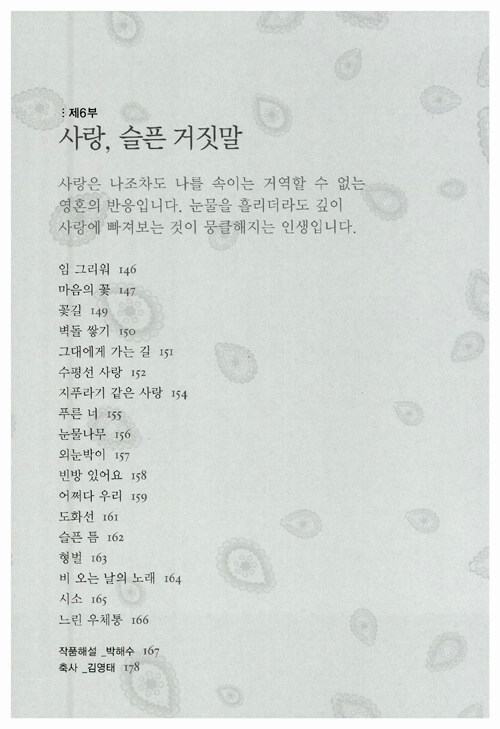 ⋮ 제6부
사랑, 슬픈 거짓말
사랑은 나조차도 나를 속이는 거역할 수 없는
영혼의 반응입니다. 눈물을 흘리더라도 깊이
사랑에 빠져보는 것이 뭉클해지는 인생입니다.
임 그리워 146
마음의 꽃 147
꽃길 149
벽돌 쌓기 150
그대에게 가는 길 151
수평선 사랑 152
지푸라기 같은 사랑 154
푸른 너 155
눈물나무 156
외눈박이 157
빈방 있어요 158
어쩌다 우리 159
도화선 161
슬픈 틈 162
형벌 163
비 오는 날의 노래 164
시소 165
느린 우체통 166
작품해설 _박해수 167
축사 _김영태 178